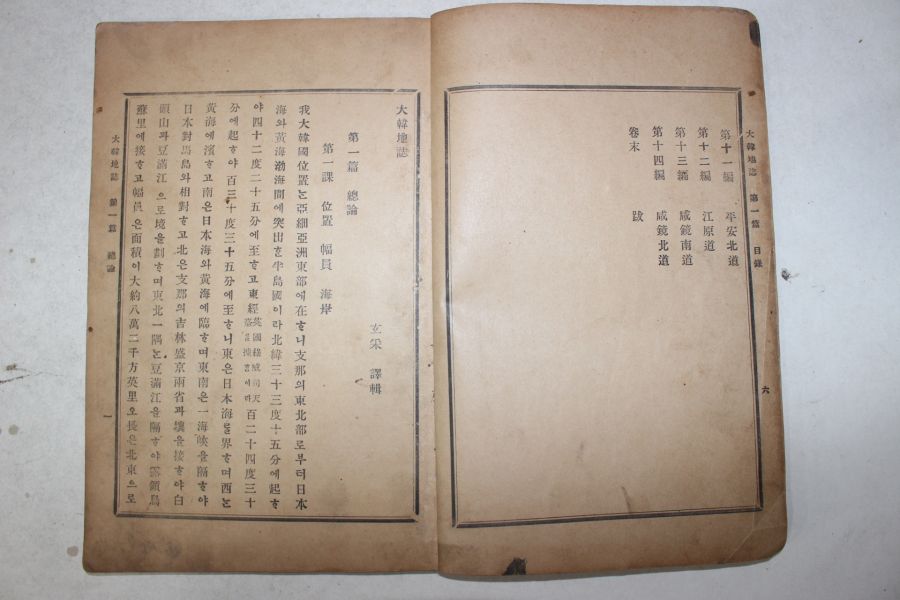 大韓地誌 第一篇 目錄
第十一編 平安北道
第十二編 江原道
第十三編 咸鏡南道
第十四編 咸鏡北道
卷末 跋
六
大韓地誌
玄采 譯輯
第一篇 總論
第一課 位置 幅員 海岸
我大韓國位置는亞細亞洲東部에在ᄒᆞ니支那의東北部로부터日本
海와黃海渤海間에突出ᄒᆞᆫ半島國이라北緯三十三度十五分에起ᄒᆞ
야四十二度二十五分에至ᄒᆞ고東經英國綠威司天臺를據흠이라百二十四度三十
分에起ᄒᆞ야百三十度三十五分에至ᄒᆞ니東은日本海를界ᄒᆞ며西는
黃海에濱ᄒᆞ고南은日本海와黃海에臨ᄒᆞ며東南은一海峽을隔ᄒᆞ야
日本對馬島와相對ᄒᆞ고北은支那의吉林盛京兩省과壤을接ᄒᆞ야白
頭山과豆滿江으로境을劃ᄒᆞ며東北一隅는豆滿江을隔ᄒᆞ야露領烏
蘇里에接ᄒᆞ고幅員은面積이大約八萬二千方英里오長은北東으로
大韓地誌 第一篇 總論
一